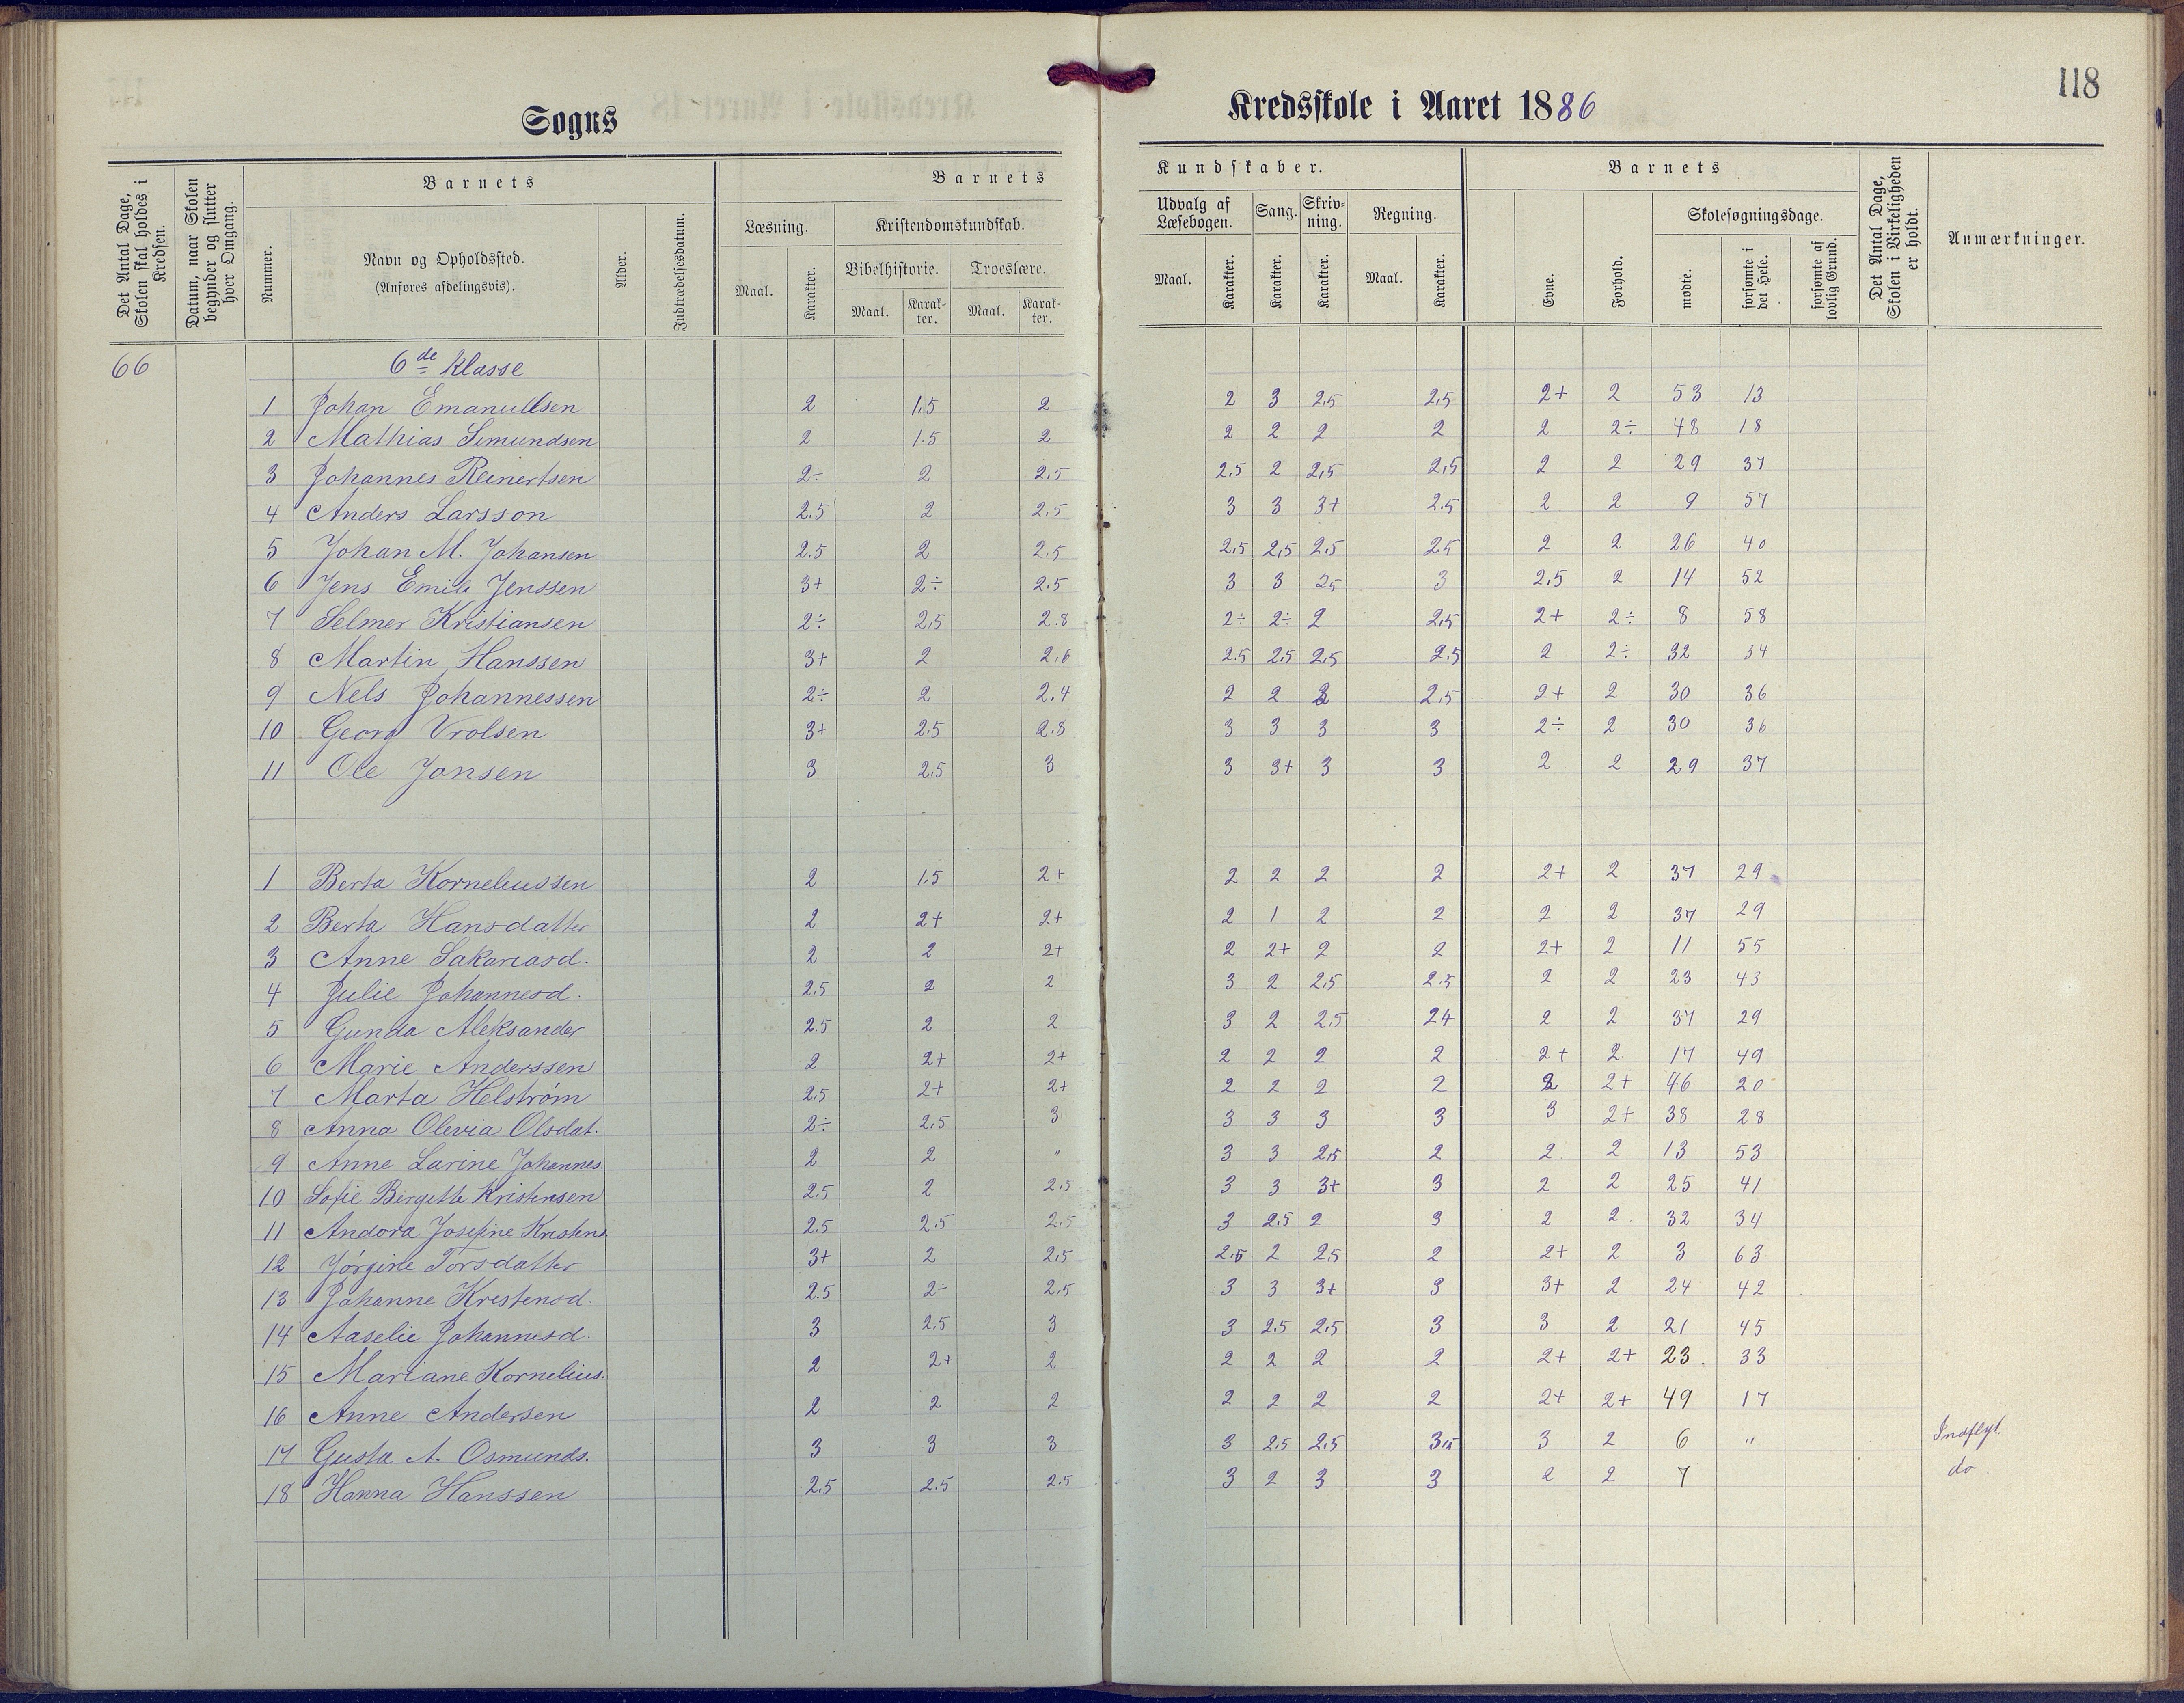 118
Sogns
Kredsskole i Aaret 1886
Det Antal Dage, Skolen skal holdes i Kredsen.
Datum, naar Skolen begynder og slutter hver Omgang.
Barnets
Nummer.
Navn og Opholdssted.
(Anføres afdelingsvis).
Alder.
Indtrædelsesdatum.
Barnets
Læsning.
Kristendomskundskab.
Maal.
Karakter.
Bibelhistorie.
Troeslære.
Maal.
Karakter.
Maal.
Karakter.
Kundskaber.
Udvalg af Læsebogen.
Sang.
Skrivning.
Regning.
Maal.
Karakter.
Karakter.
Karakter.
Maal.
Karakter.
Barnets
Evne.
Forhold.
Skolesøgningsdage.
mødte.
forsømte i det Hele.
forsømte af lovlig Grund.
Det Antal Dage, Skolen i Virkeligheden er holdt.
Anmærkninger.
66 6de Klasse
1 Johan Emanuelsen 2 1,5 2 2 3 2,5 2,5 2+ 2 53 13
2 Mathias Simundsen 2 1.5 2 2 2 2 2 2 2÷ 48 18
3 Johannes Reinertsen 2÷ 2 2,5 2,5 2 2,5 2,5 2 2 29 37
4 Anders Larsson 2.5 2 2.5 3 3 3+ 2.5 2 2 9 57
5 Johan M. Johansen 2.5 2 2.5 2,5 2,5 2,5 2.5 2 2 26 40
6 Jens Emil Jenssen 3+ 2÷ 2.5 3 3 2,5 3 2,5 2 14 52
7 Selmer Kristiansen 2÷ 2,5 2.8 2÷ 2÷ 2 2,5 2+ 2÷ 8 58
8 Martin Hanssen 3+ 2 2,6 2.5 2.5 2.5 2.5 2 2÷ 32 34
9 Nels Johannessen 2÷ 2 2.4 2 2 2 2.5 2+ 2 30 36
10 Georg Vrolsen 3+ 2.5 2.8 3 3 3 3 2÷ 2 30 36
11 Ole Jonsen 3 2,5 3 3 3+ 3 3 2 2 29 37
1 Berta Korneliussen 2 1.5 2+ 2 2 2 2 2+ 2 37 29
2 Berta Hansdatter 2 2+ 2+ 2 1 2 2 2 2 37 29
3 Anne Sakariasd. 2 2 2+ 2 2+ 2 2 2+ 2 11 55
4 Julie Johannesd. 2,5 2 2 3 2 2,5 2.5 2 2 23 43
5 Gunda Aleksander 2.5 2 2 3 2 2,5 24 2 2 37 29
6 Marie Anderssen 2 2+ 2+ 2 2 2 2 2+ 2 17 49
7 Marta Helstrøm 2,5 2+ 2+ 2 2 2 2 2 2+ 46 20
8 Anna Olevia Olsdat. 2÷ 2,5 3 3 3 3 3 3 2+ 38 28
9 Anne Larine Johannes. 2 2 " 3 3 2,5 2 2 2 13 53
10 Sofie Birgitte Kristensen 2,5 2 2,5 3 3 3+ 3 2 2 25 41
11 Andora Josefine Kristens. 2.5 2.5 2.5 3 2.5 2 3 2 2 32 34
12 Jørgine Torsdatter 3+ 2 2,5 2.5 2 2,5 2 2+ 2 3 63
13 Johanne Kristensd. 2.5 2÷ 2,5 3 3 3+ 3 3+ 2 24 42
14 Aaselie Johannesd. 3 2.5 3 3 2.5 2.5 3 3 2 21 45
15 Mariane Kornelius. 2 2+ 2 2 2 2 2 2+ 2+ 23. 33
16 Anne Andersen 2 2 2 2 2 2 2 2+ 2+ 49 17
17 Gusta A. Osmunds. 3 3 3 3 2,5 2,5 3,5 3 2 6 " Indflyt.
18 Hanna Hanssen 2,5 2.5 2.5 3 2 3 3 2 2 7 do